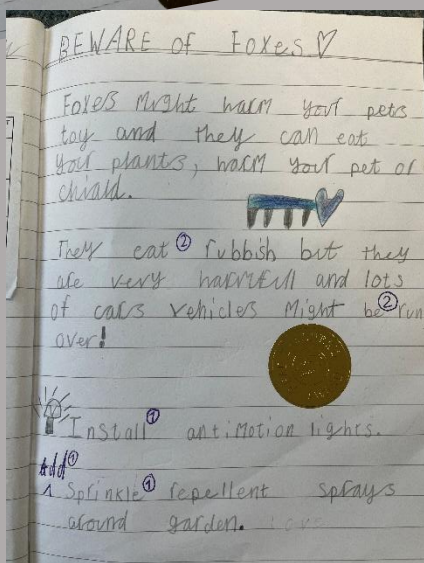 BEWARE of Foxes♡
Foxes Might harm your pets
toy and they can eat
your plants, harm your pet or
chiald.
They eat ② rubbish but they
are very harmfull and lots
of cars vehicles Might be ② run
over!
Install ① antimotion lights.
Add ①
1 Sprinkle ① repellent sprays
around garden.